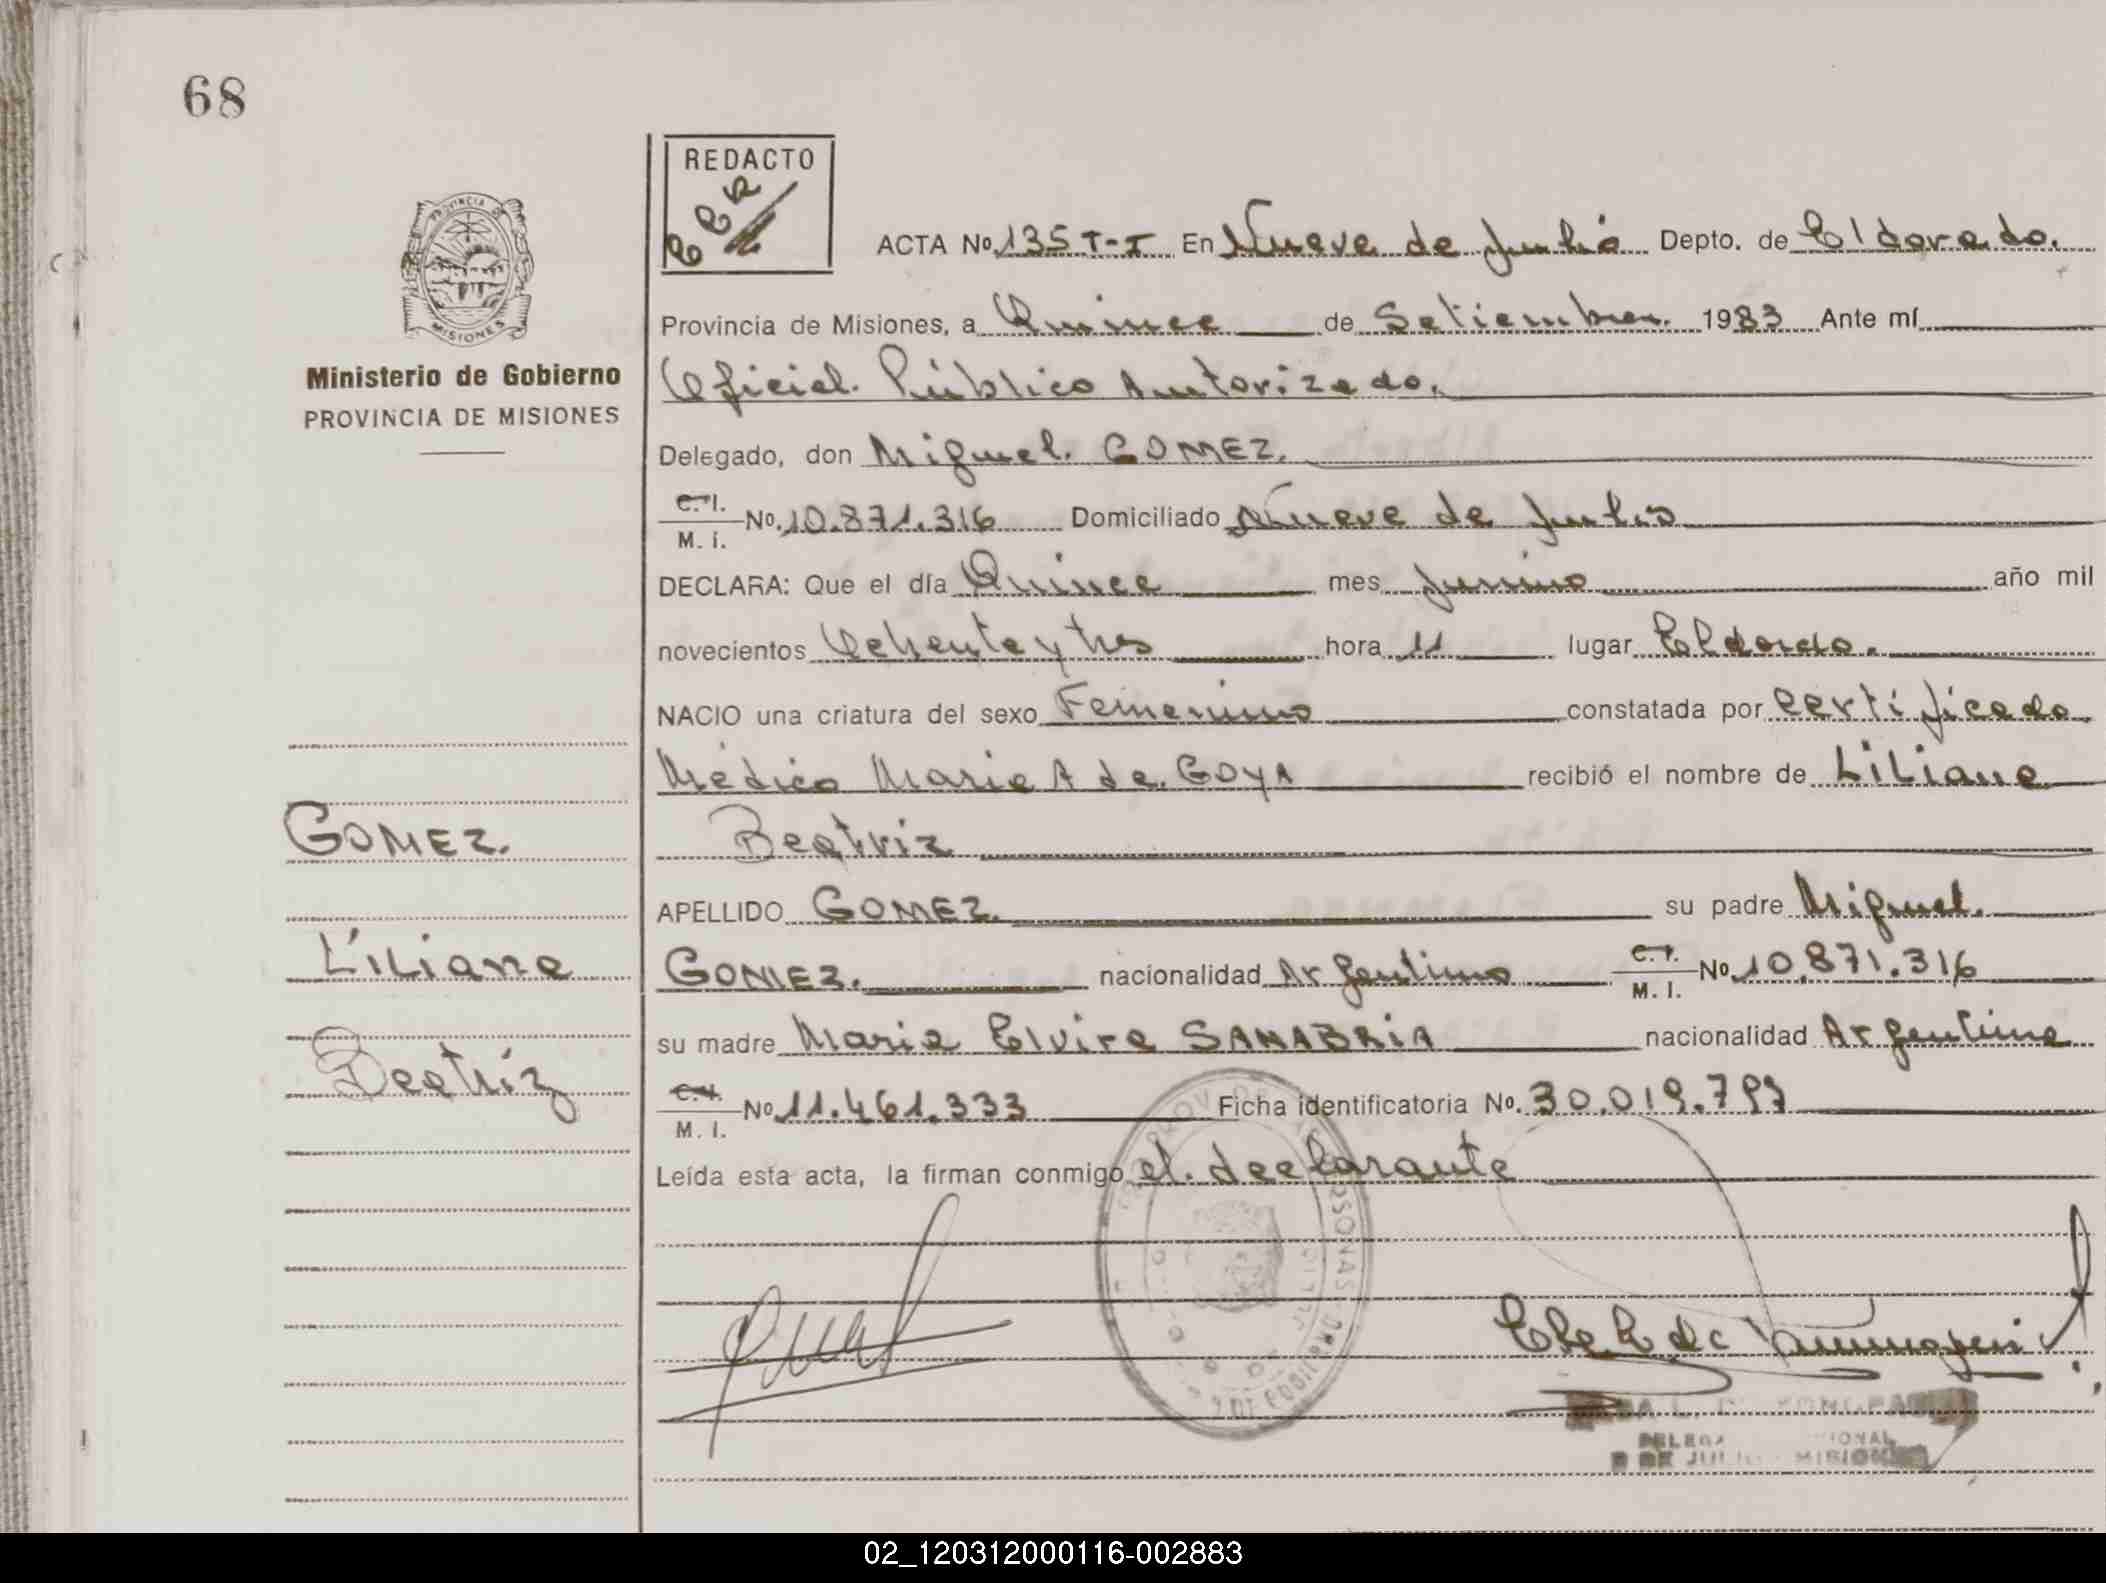 68
REDACTO
ACTA No. 135 T-I En Nueve de Julio Depto. de Eldorado.
Provincia de Misiones, a Quince de Setiembre. 1983 Ante mí
Ministerio de Gobierno
PROVINCIA DE MISIONES
Oficial. Público Autorizado.
Delegado, don Miguel. GOMEZ.
C. I.
M. I. No. 10.871.316 Domiciliado Nueve de Julio
DECLARA: Que el día Quince mes Junio año mil
novecientos Ochenta y tres hora 11 lugar Eldordo.
NACIO una criatura del sexo Femenino constatada por Certificado
Médico Maria A de. GOYA recibió el nombre de LiLiana
Beatriz
APELLIDO GOMEZ. su padre Miguel.
GOMEZ. nacionalidad Argentino C. I.
M. I. No. 10.871.316
su madre Maria Elvira SANABRIA nacionalidad Argentina
C. I.
M. I. No. 11.461.333 Ficha identificatoria No. 30.019.797
Leída esta acta, la firman conmigo el. declarante
GOMEZ.
LiLiana
Beatriz
PROVINCIA DE
MISIONES
9 DE JULIO - MISIONES
02_120312000116-002883